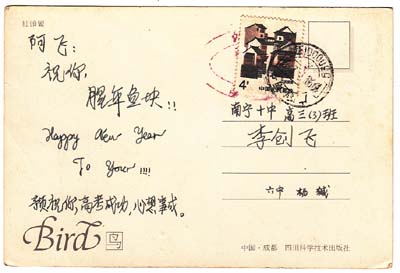 阿飞：
祝你，
腥年鱼块!!
Happy New Year
To Your!!!!
预祝你高考成功，心想事成。
Bird 鸟
4
南宁十中 高三(3)班
李创飞
六中 杨
中国·成都 四川科学技术出版社